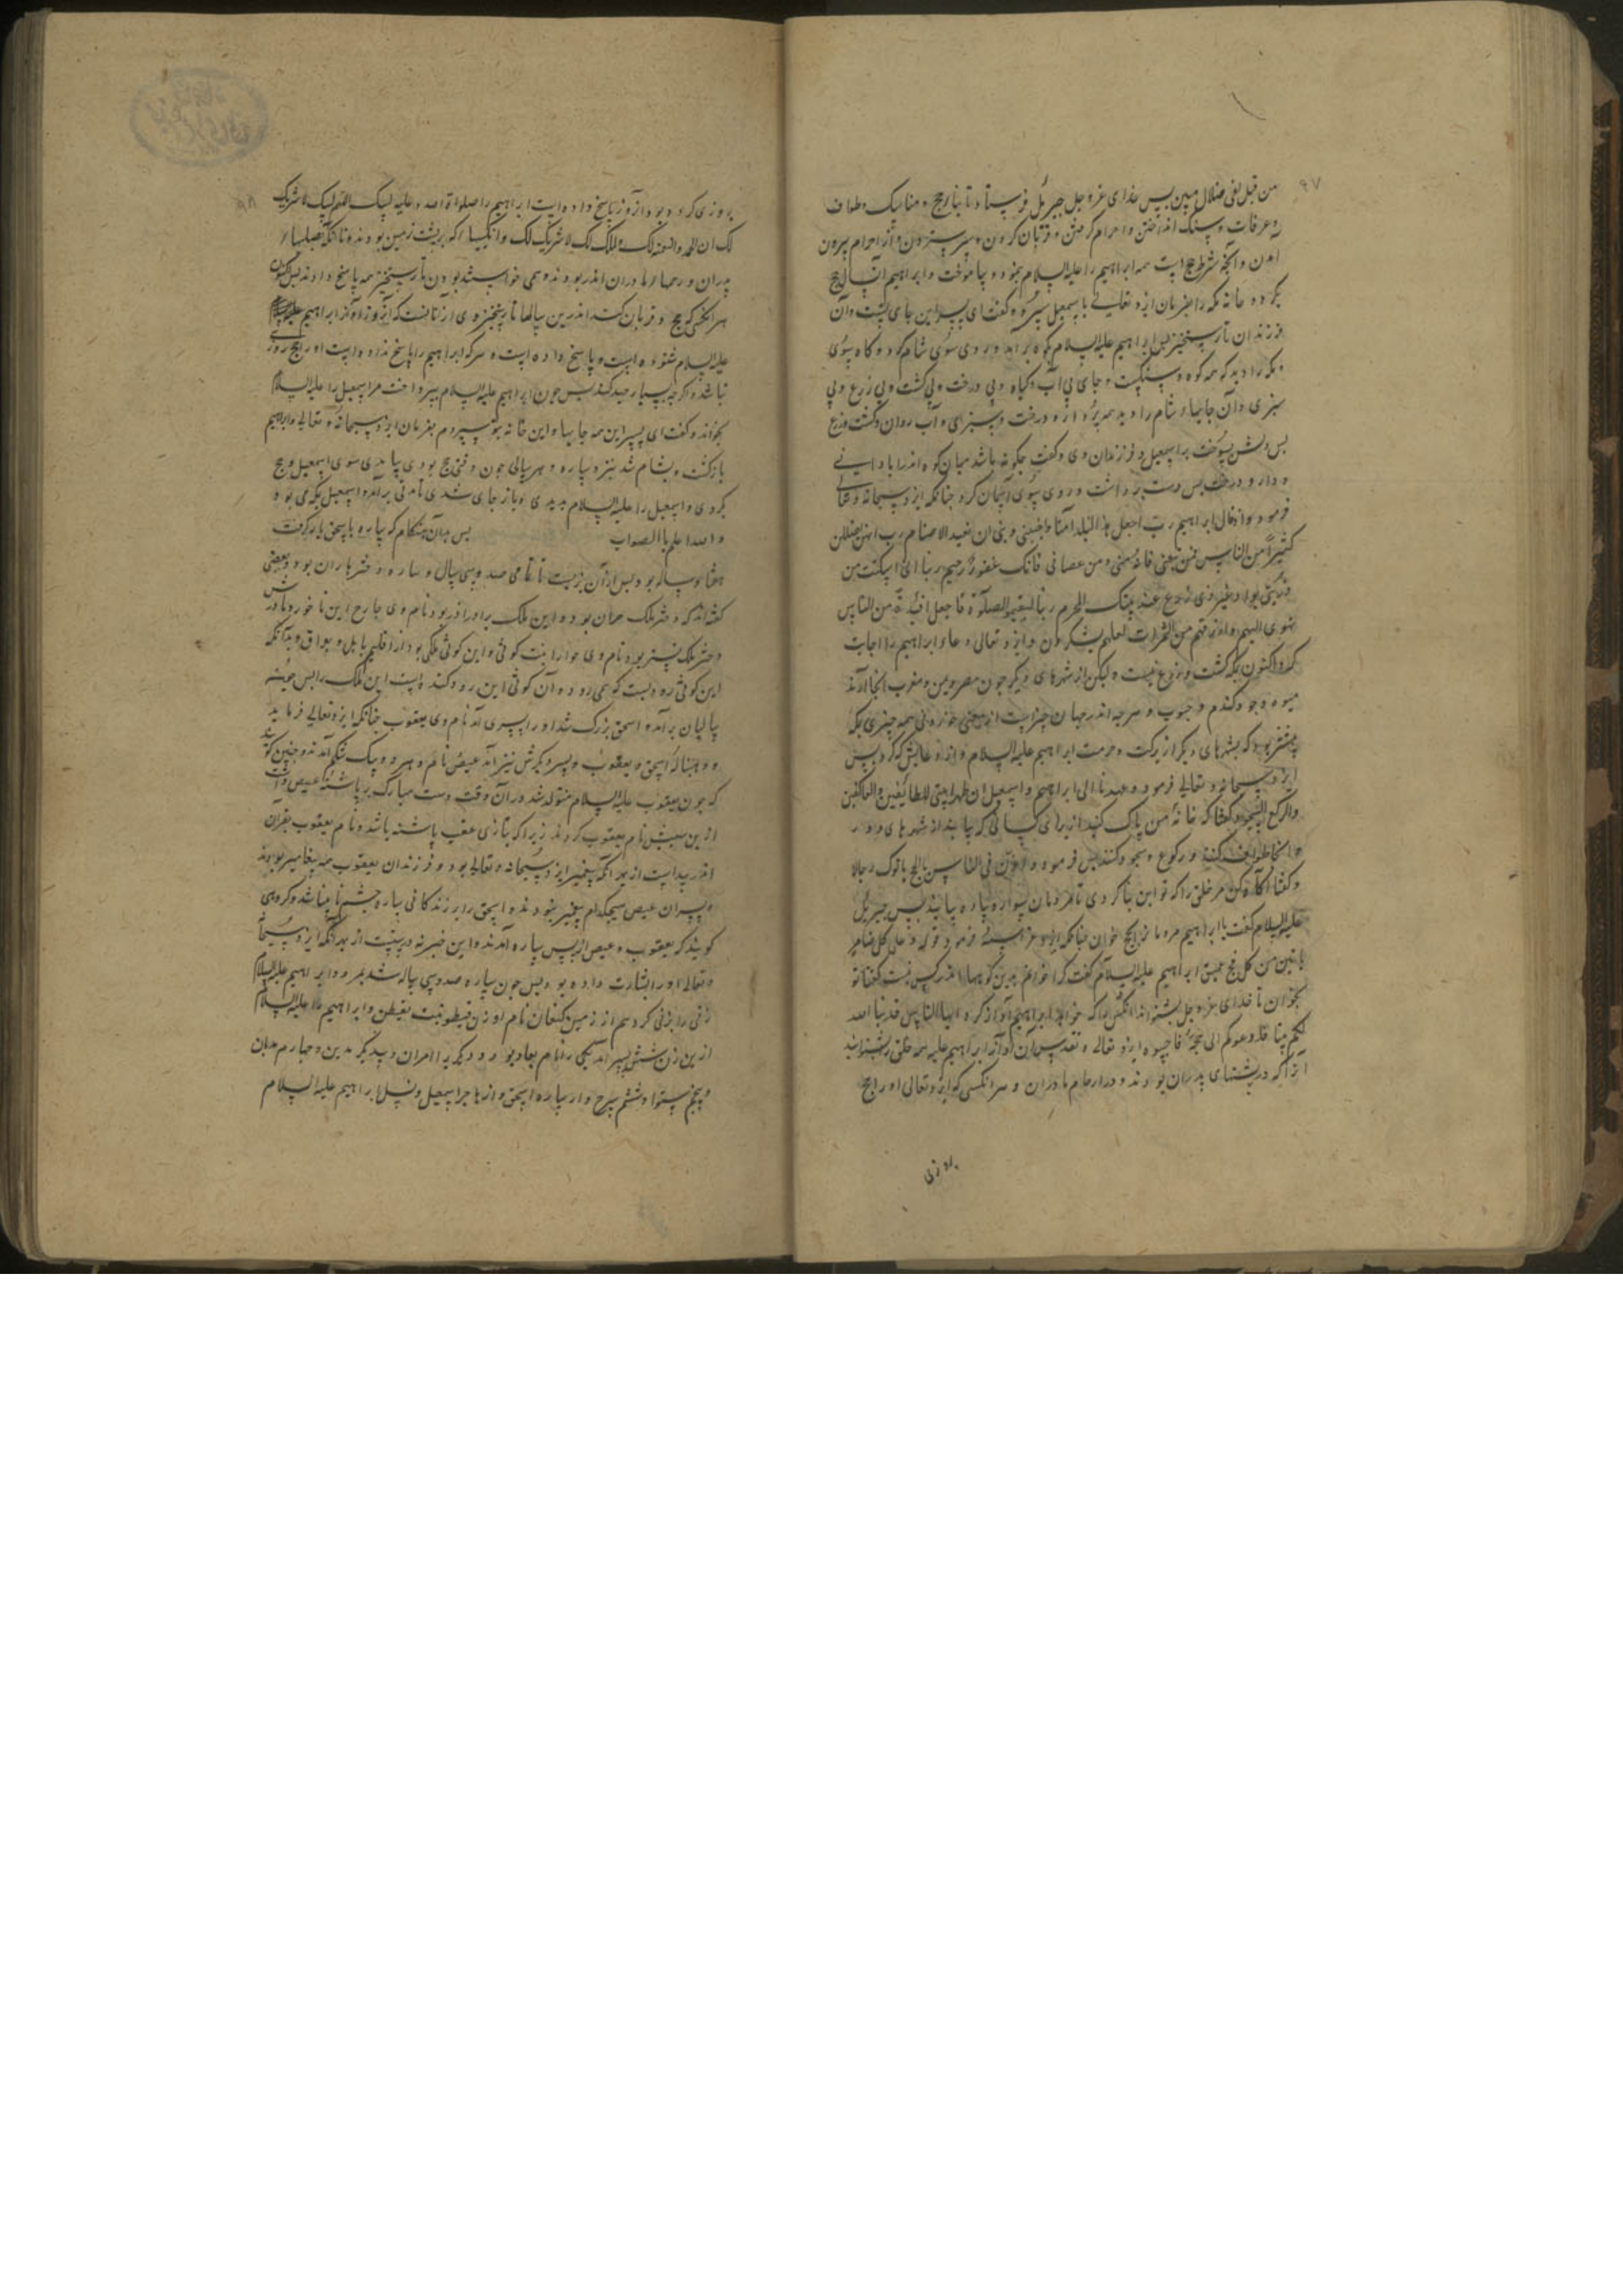 ۹۷
من قبل لفی ضلال مبین پس خدای عزوجل جبرئل فرستاد تا بنا حج و مناسک و طواف
و عرفات و سنک انداختن و احرام کرفتن و قربان کردن و سر ستردن و از احرام بیرون
امدن و آنچه شرط حج است همه ابراهیم را علیه السلام بنمود و بیاموخت و ابراهیم آن سال حج
بکرد و خانه مکه را بفرمان ایزد تعالی باسمعیل سپرد و کفت ای پسر این جای تست و آن
فرزندان تا رستخیز پس ابراهیم علیه السلام بکوه برآمد و روی سوی شام کرد و کاه سوی
مکه را دید که همه کوه و سنکست و جای بی آب و کیاه و بی درخت و بی کشت و بی زرع و بی
سبزی و آن جایها شام را دید همه پر از درخت و سبزی و آب روان و کشت و زرع
پس دلش بسوخت بر اسمعیل و فرزندان وی و کفت چکونه باشد میان کوه اندر
و دار و درخت پس دست برداشت و روی سوی آسمان کرد چنانکه ایزد سبحانه و تعالی
فرمود و اذ قال ابراهیم رب اجعل هذا البلد آمنا و اجنبنی و بنی ان نعبد الاصنام رب انهن اضللن
کثیرا من الناس فمن تبعنی فانه منی و من عصانی فانک غفور رحیم ربنا انی اسکنت من
ذریتی بواد غیر ذی زرع عند بیتک المحرم ربنا لیقیموا الصلوة فاجعل افئدة من الناس
تهوی الیهم وارزقهم من الثمرات لعلهم یشکرون و ایزد تعالی دعاء ابراهیم را اجابت
کرد اکنون بمکه کشت و زرع نیست ولیکن از شهرهای دیکر چون مصر و یمن و مغرب آنجا آرند
میوه و جو و کندم و حبوب و هرچه اندر جهان چیز است از خوردنی همه چیزی بمکه
بیشتر بود که بشهرهای دیکر از برکت و حرمت ابراهیم علیه السلام و از دعایش که کرد پس
ایزد سبحانه و تعالی فرمود و عهدنا الی ابراهیم و اسمعیل ان طهرا بیتی للطائفین والعاکفین
والرکع السجود و کفتا که خانه من پاک کنید از برای کسانی که بیایند از شهرهای دور
و آنجا طواف کنند و رکوع و سجود کنند پس فرمود و اذن فی الناس بالحج یاتوک رجالا
و کفتا آکاه کن مر خلق را که تو این بنا کردی تا مردمان سواره و پیاده بیایند پس جبریل
علیه السلام کفت یا ابراهیم مردمان را بحج خوان چنانکه ایزد فرمود قوله و علی کل ضامر
یاتین من کل فج عمیق ابراهیم علیه السلام کفت کرا خوانم بدین کوهها اندر کس نیست کفتا تو
بخوان تا خدای عزوجل بشنواند آنکس را که خواهد ابراهیم آواز کرد ایها الناس قد بنا الله
لکم بیتا فدعوکم الی حجه فاجیبوه ایزد تعالی و تقدس آن آواز ابراهیم علیه همه خلق را بشنوانید
از آنکه در پشتهای پدران بودند و در ارحام مادران و هر آنکسی که ایزد تعالی او را حج
روزی
۹۸
روزی کرده بود آنروز پاسخ داده است ابراهیم را صلواة الله علیه لبیک اللهم لبیک لا شریک
لک ان الحمد والنعمة لک والملک لک لا شریک لک و آنکسها که بر پشت زمین بودند تا آنکه بصلبهاء
پدران و رحمهاء مادران اندر بودند و همی خواستند بودن تا رستخیز همه پاسخ دادند پس اکنون
هر آنکس که حج و قربان کند اندرین سالها تا رستخیز وی از آنانست که آنروز آواز ابراهیم
علیه السلام شنوده است و پاسخ داده است و هر که ابراهیم را پاسخ نداده است او را حج روزی
نباشد اکرچه بسیار جهد کند پس چون ابراهیم علیه السلام بپرداخت مر اسمعیل را علیه السلام
بخواند و کفت ای پسر این همه جایها و این خانه بتو سپردم بفرمان ایزد سبحانه و تعالی و ابراهیم
بازکشت و بشام شد بنزد ساره و هر سالی چون وقت حج بودی بیامدی سوی اسمعیل و حج
بکردی و اسمعیل را علیه السلام بدیدی و باز جای شدی تا مدتی برآمد و اسمعیل بمکه می بود
والله اعلم بالصواب پس بدان هنکام که ساره باسحق بار کرفت
هفتاد ساله بود و پس از آن بزیست تا تمامی صد و سی سال و ساره دختر هاران بود و بعضی
کفته اند که دختر ملک حران بود و این ملک برادر آذر بود نام وی
دختر ملک بود نام وی بنت کوثی و این کوثی ملکی بود از اقلیم بابل و عراق و بدآنکه
این کوثی رودیست که می رود و آن کوثی این رود کنده است این ملک را پس
سالیان برآمد و اسحق بزرک شد او را پسری آمد نام وی یعقوب چنانکه ایزد تعالی فرماید
و وهبنا له اسحق و یعقوب و پسر دیکرش نیز آمد عیص نام و هر دو بیک شکم آمدند و چنین کویند
که چون یعقوب علیه السلام متولد شد در آن وقت دست مبارک بر پاشنه عیص داشت
ازین سبب نام یعقوب کردند زیرا که بتازی عقب پاشنه باشد و نام یعقوب بقرآن
اندر پیداست از بهر آنکه پیغمبر ایزد سبحانه و تعالی بود و فرزندان یعقوب همه پیغامبر بودند
و پسران عیص هیچکدام پیغمبر نبودند و اسحق را بزندکانی ساره چشم نابینا شد و کروهی
کویند که یعقوب و عیص از پس ساره آمدند و این خبر نه درستست از بهر آنکه ایزد سبحانه
و تعالی او را بشارت داده بود پس چون ساره صد و سی ساله شد بمرد و ابراهیم علیه السلام
زنی را بزنی کرد هم از زمین کنعان نام او قنطورا بنت یقطن و ابراهیم را علیه السلام
ازین زن شش پسر آمد یکی را نام بود و دیکر و سدیکر مدین و چهارم مدان
و پنجم و ششم سرح و از ساره اسحق و از هاجر اسمعیل و نسل ابراهیم علیه السلام